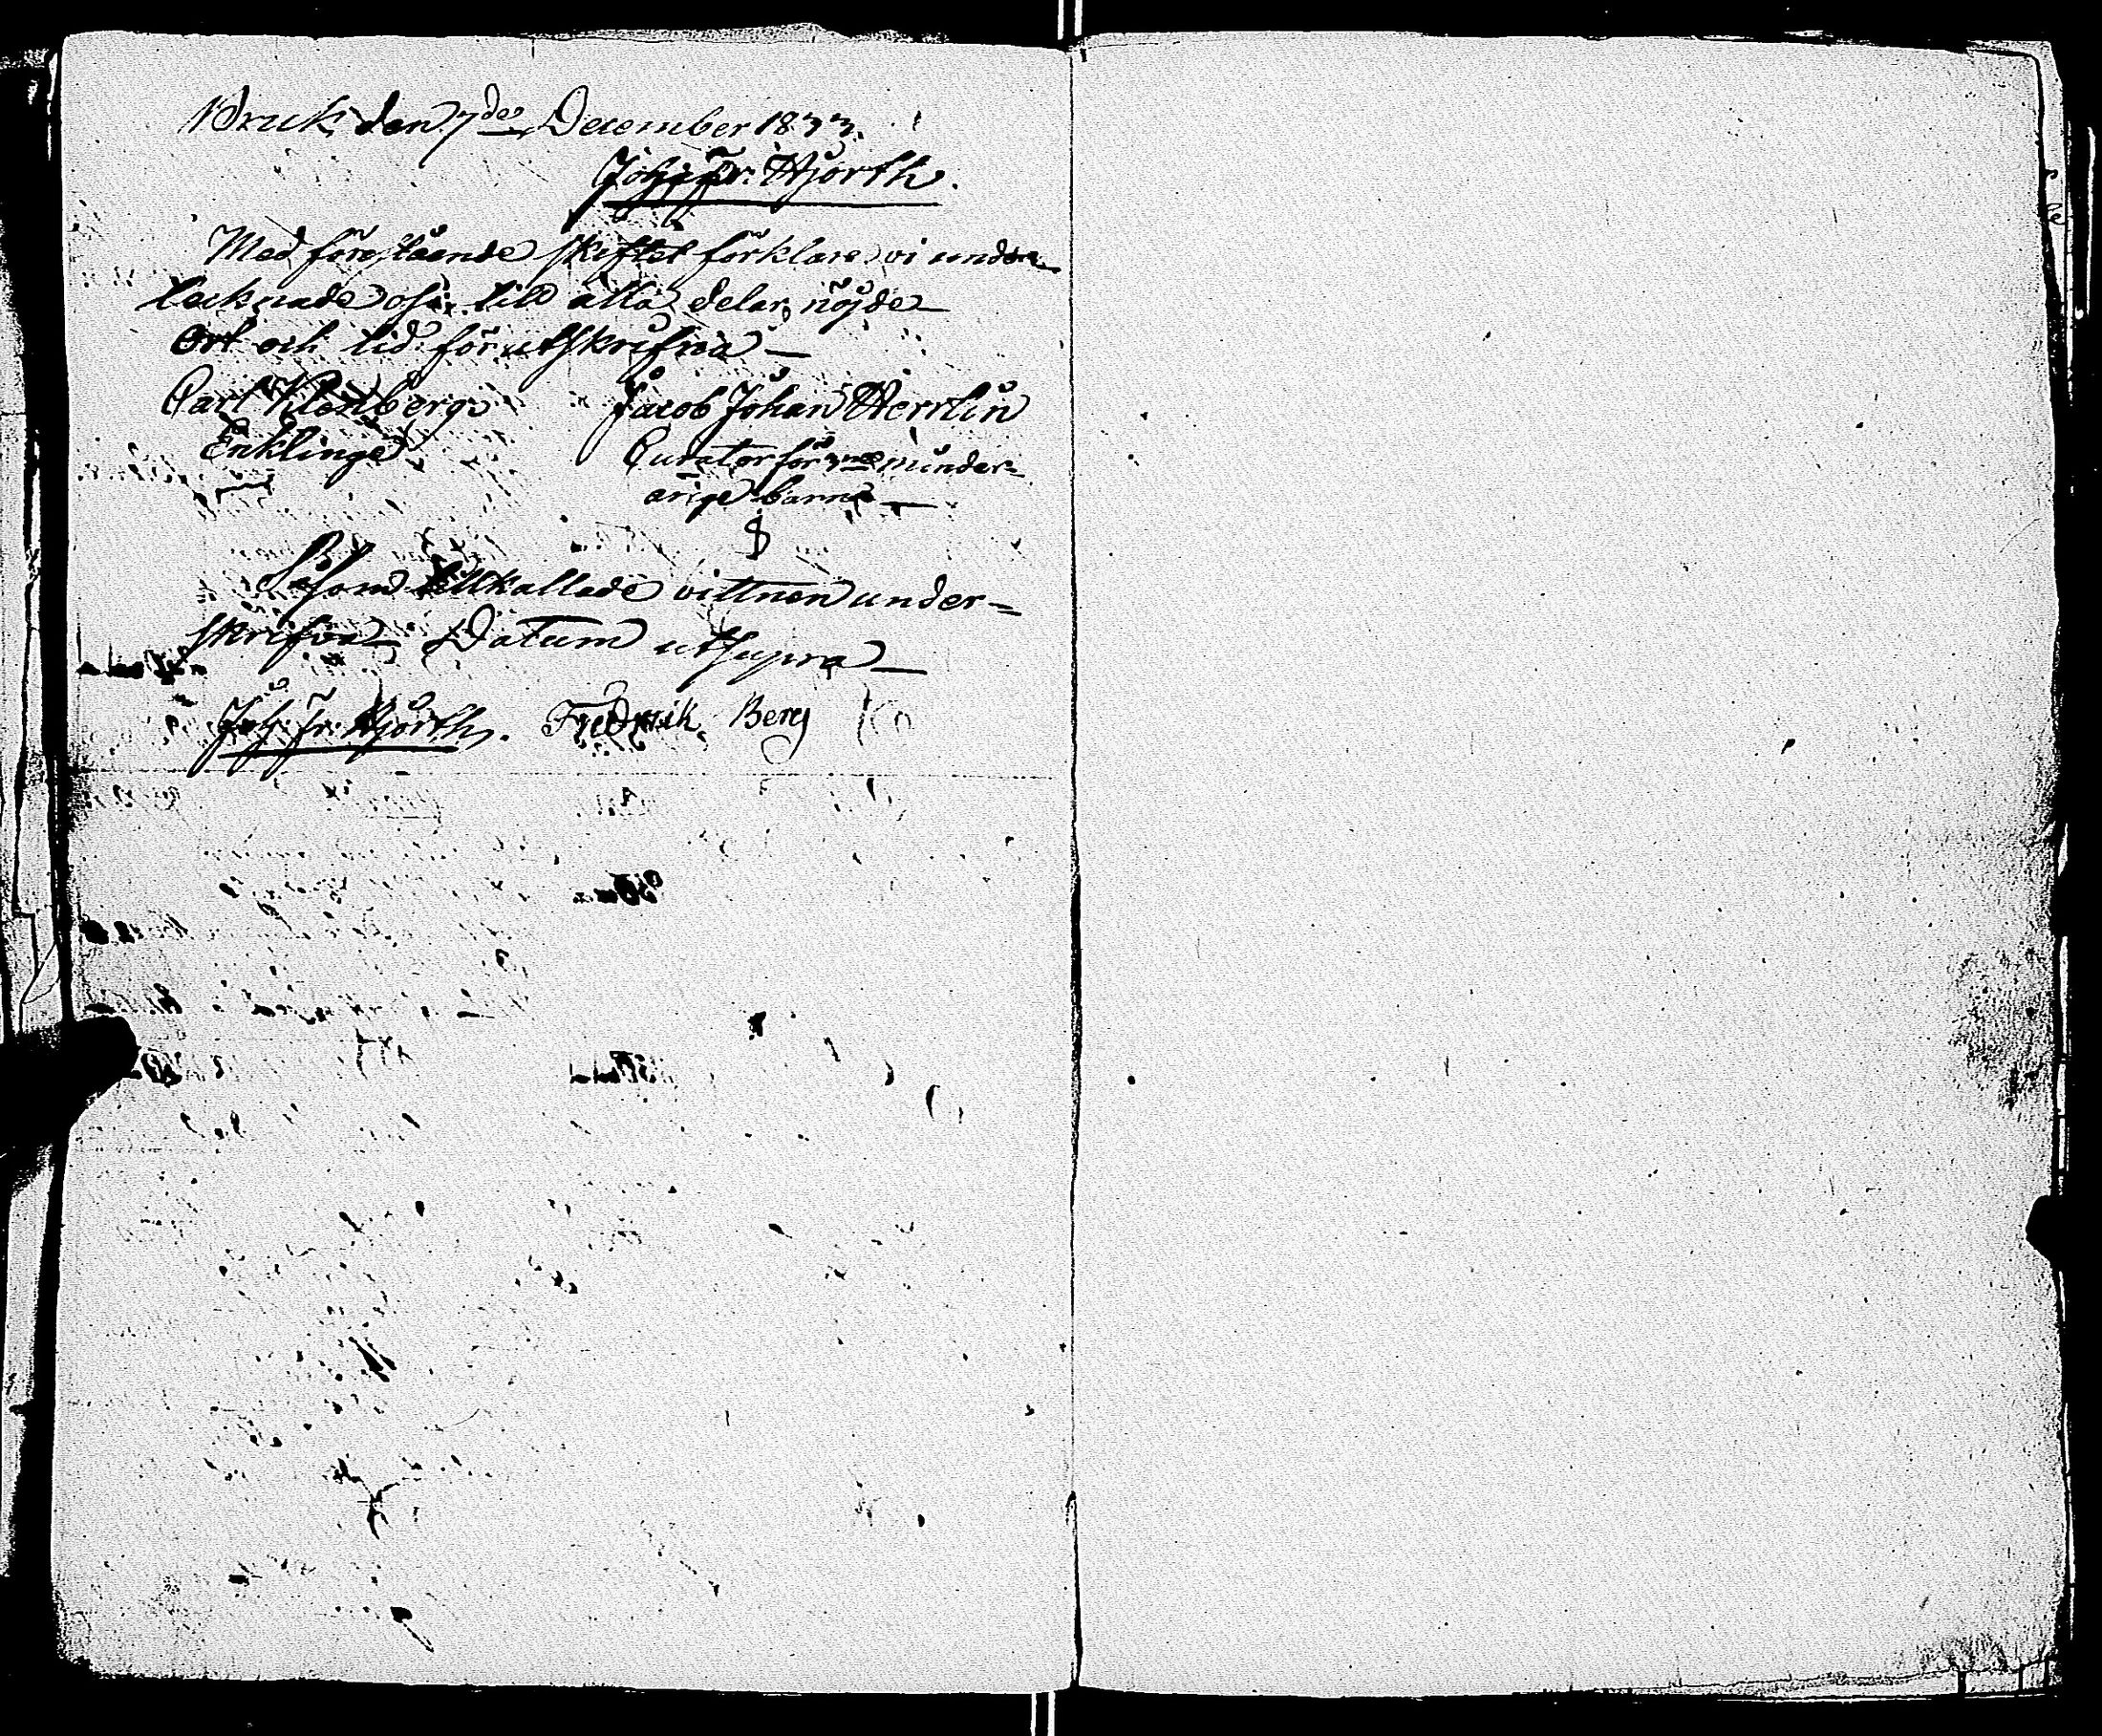 Bruk den 7de December 1833.
Joh: Fr: Hjorth.
Med förestående skiftet förklare vi under
tecknade oss till alla delar nöjde
Ort och tid förutskrifna
Carl Klenberg Jacob Johan Herrlin
Enklinge Curator för 3ne minder-
årige barn
Såsom tillkallade vittnen under-
skrifva Datum utsupra
Joh: Fr: Hjorth. Fredrik Berg